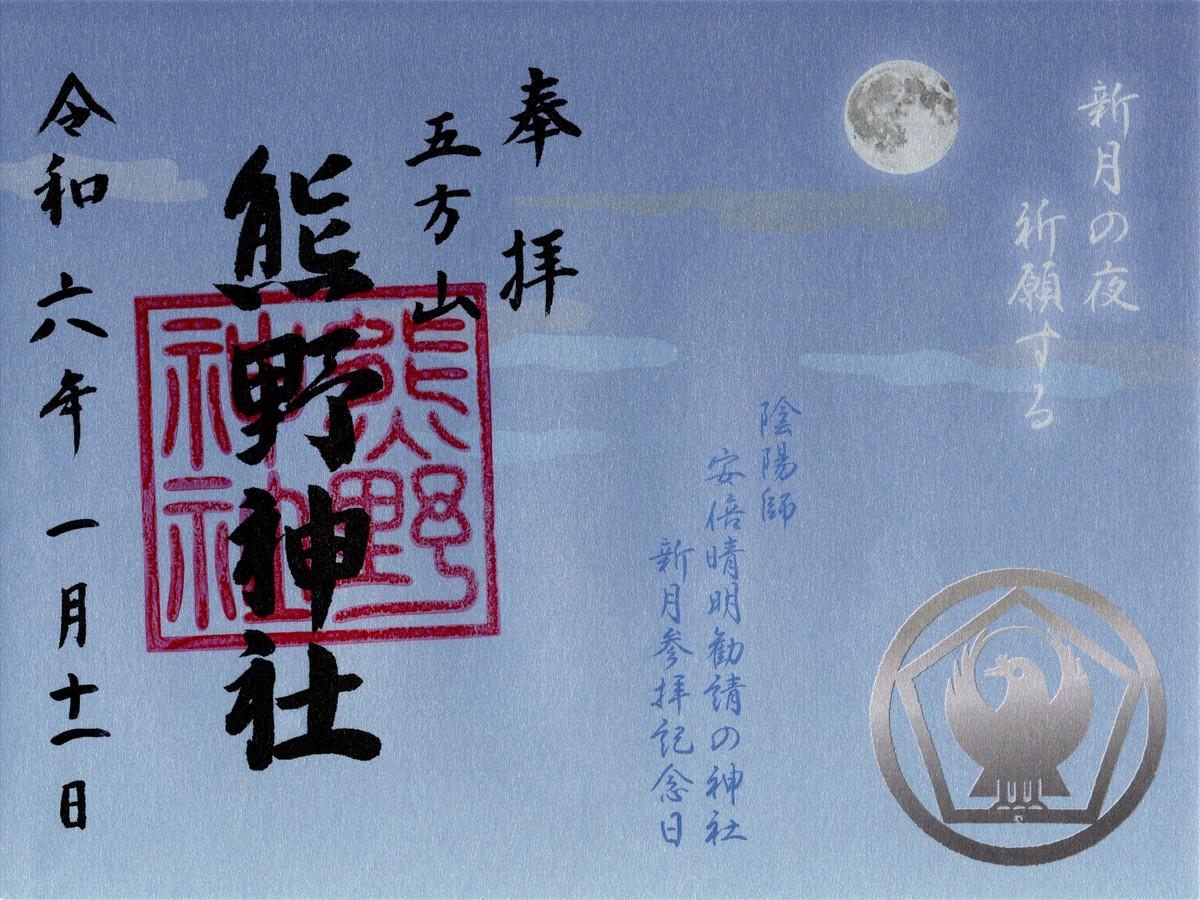 新月の夜
祈願する
陰陽師
安倍晴明勧請の神社
新月参拝記念日
奉拝
五方山
熊野神社
熊野
神社
令和六年一月十一日